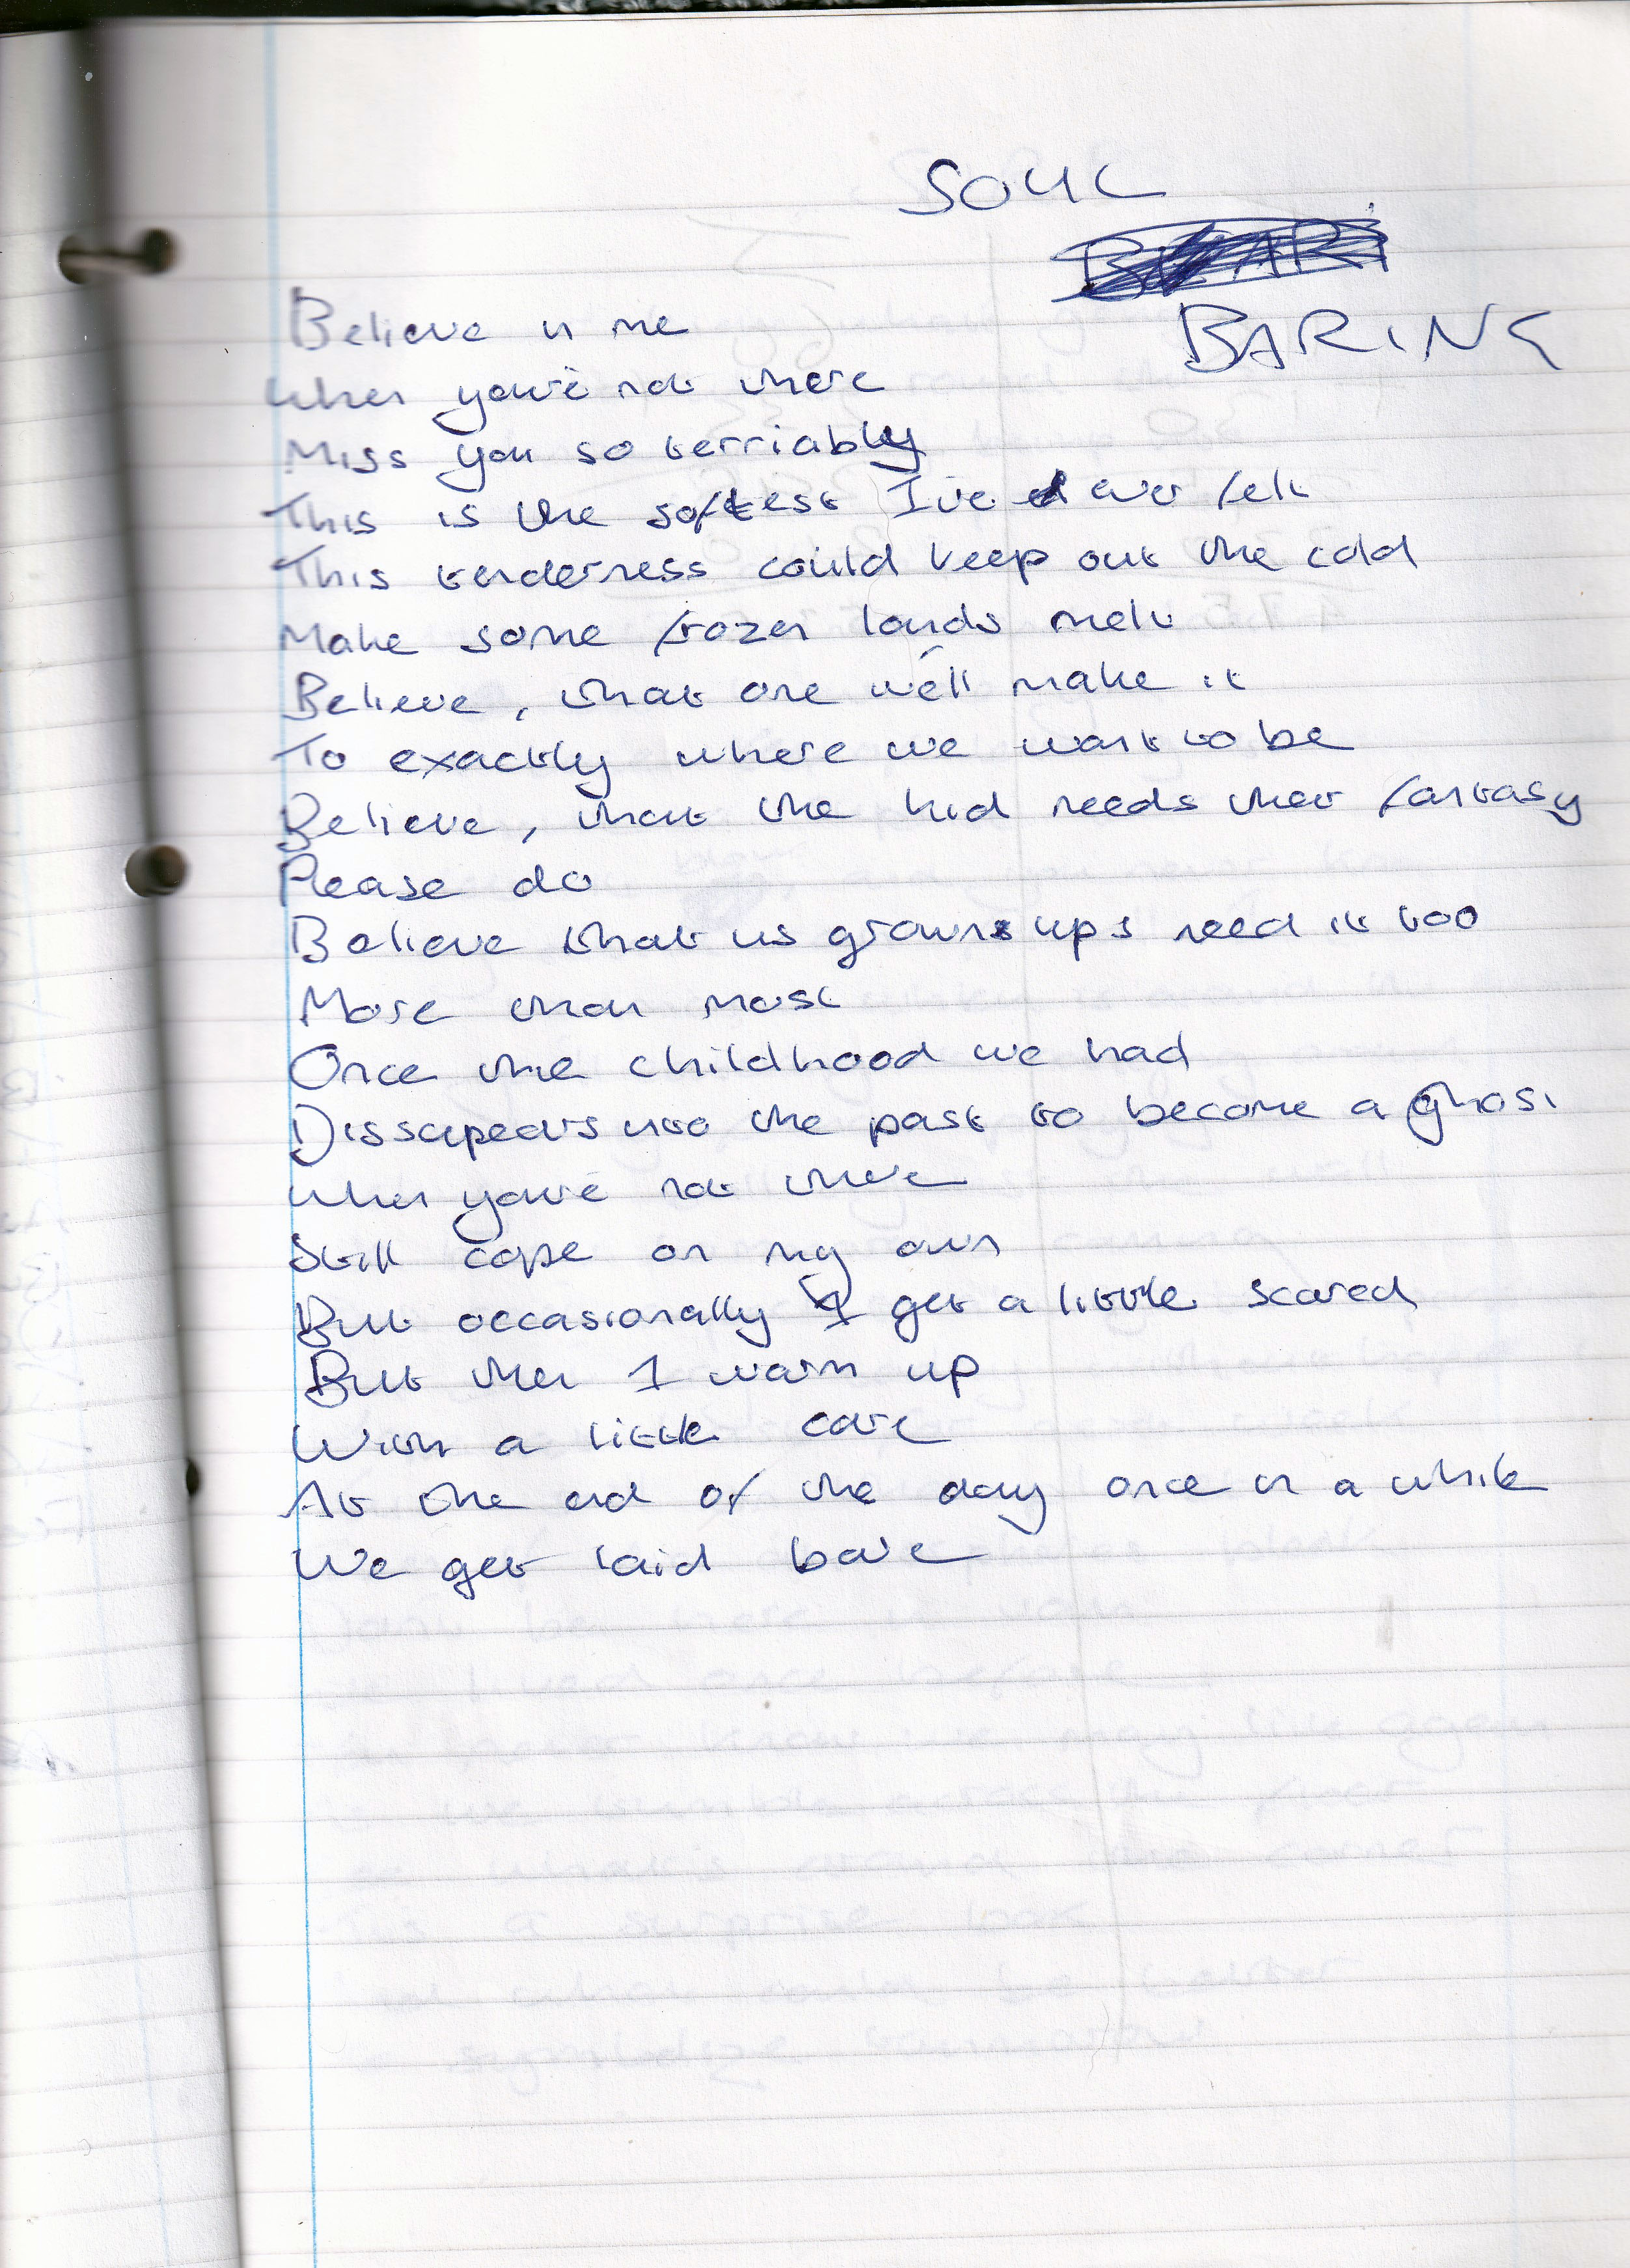 SOUL
BARING
Believe in me
When you're not there
Miss you so terriably
This is the softest I've ever felt
This tenderness could keep out the cold
Make some frozen lands melt
Believe, that one we'll make it
To exactly where we want to be
Believe, that the kid needs their fantasy
Please do
Believe that us growns ups need it too
More than most
Once the childhood we had
Dissapears into the past to become a ghost
When you're not there
Still cope on my own
But occasionally I get a little scared
But then I warm up
With a little care
At the end of the day once in a while
We get laid bare